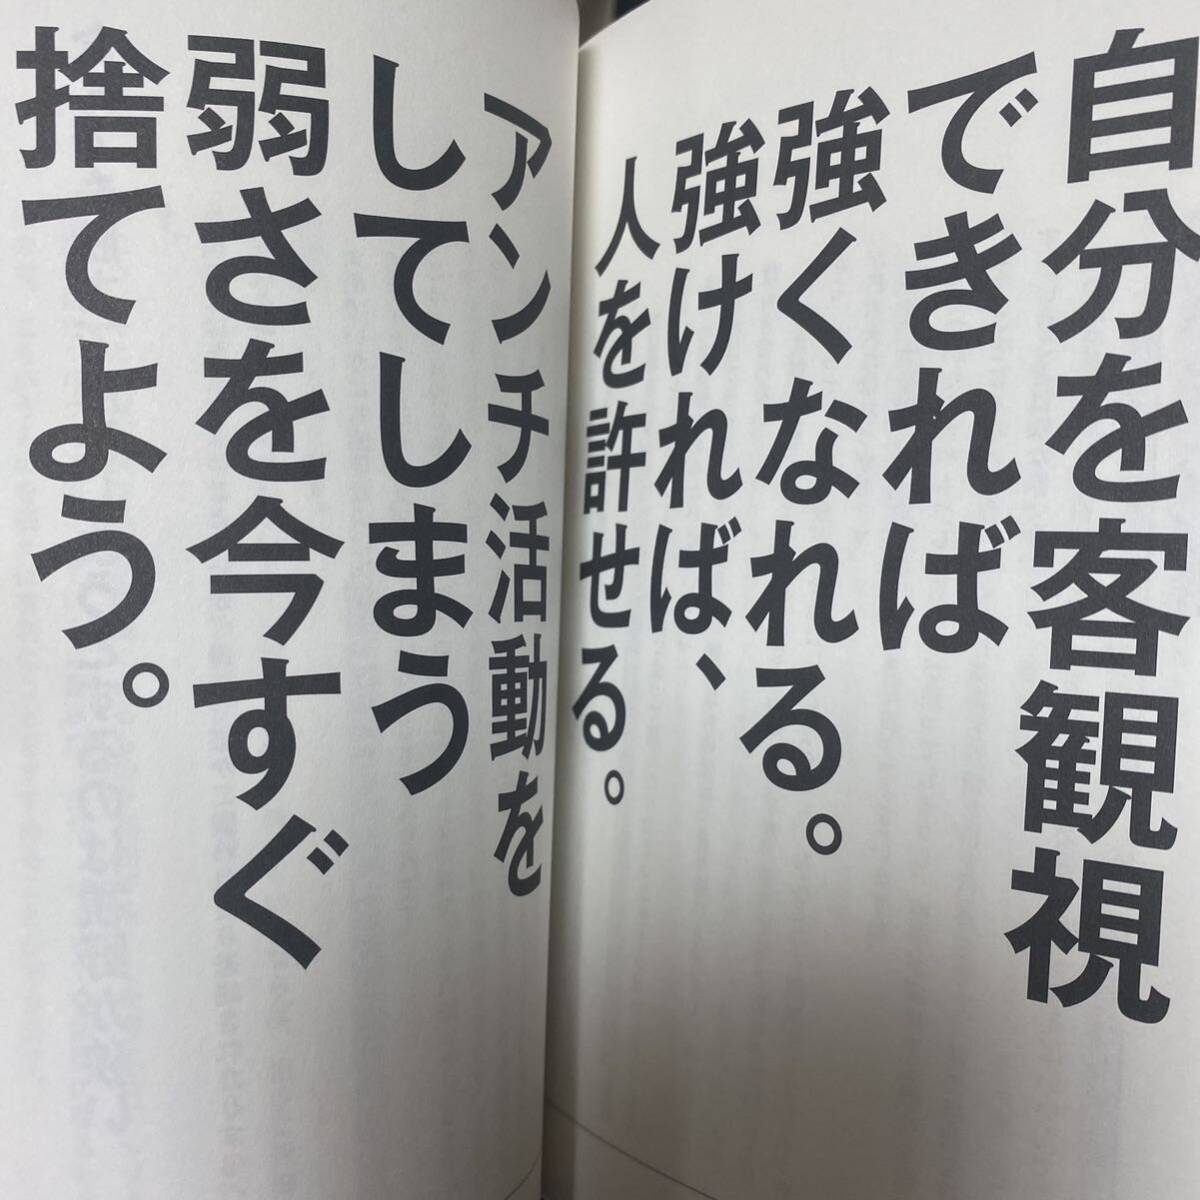 自分を客観視
できれば
強くなれる。
強ければ、
人を許せる。
アンチ活動を
してしまう
弱さを今すぐ
捨てよう。